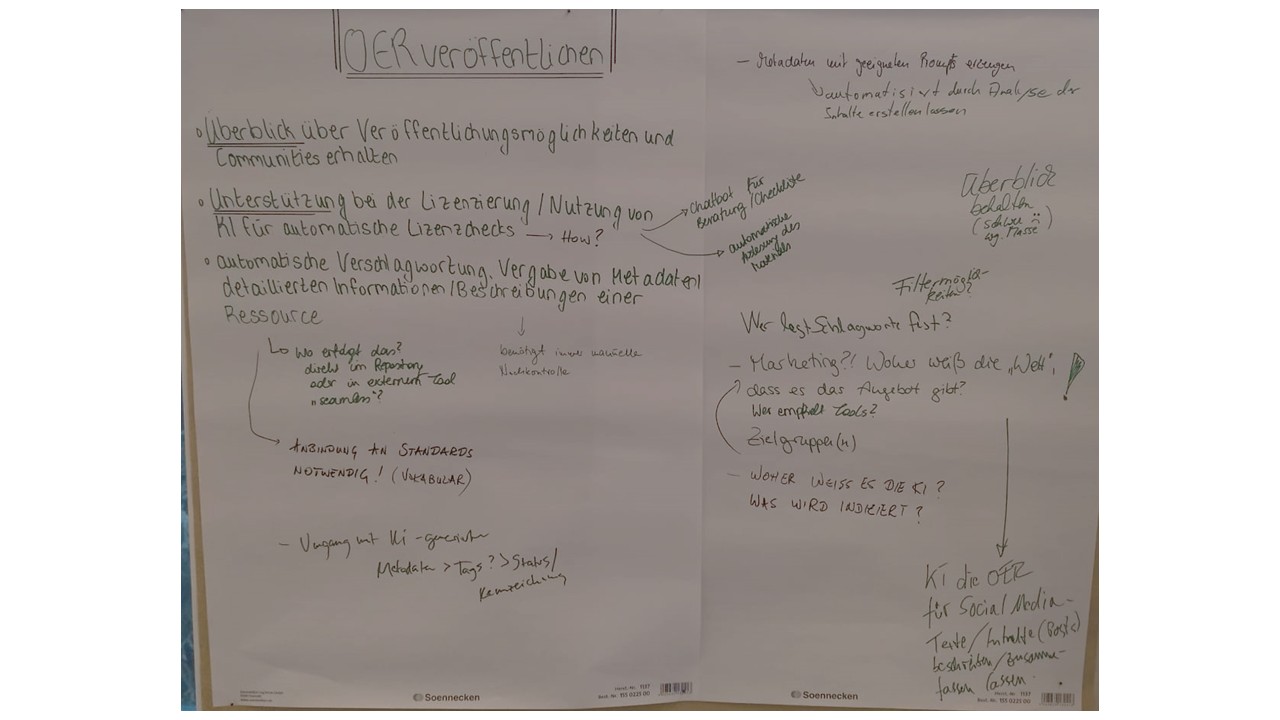 OER veröffentlichen
Überblick über Veröffentlichungsmöglichkeiten und
Communities erhalten
Unterstützung bei der Lizenzierung / Nutzung von
KI für automatische Lizenzchecks → How?
Chatbot für
Beratung / Checkliste
automatische
Auslesung des
Materials
automatische Verschlagwortung, Vergabe von Metadaten/
detaillierten Informationen / Beschreibungen einer
Ressource
Wo erfolgt das?
direkt im Repository
oder in externem Tool
"seamless"?
benötigt immer manuelle
Nachkontrolle
ANBINDUNG AN STANDARDS
NOTWENDIG! (VOKABULAR)
- Umgang mit KI-generierten
Metadaten > Tags? > Status/
Kennzeichnung
Soennecken
Best. Nr. 155 0225 00
- Metadaten mit geeigneten Prompts erzeugen
automatisiert durch Analyse der
Inhalte erstellen lassen
Überblick
behalten
(schwer
wg. Masse)
Filtermöglich-
keiten?
Wer legt Schlagworte fest?
- Marketing?! Woher weiß die "Welt",
dass es das Angebot gibt?
Wer empfiehlt Tools?
Zielgruppe(n)
- WOHER WEISS ES DIE KI?
WAS WIRD INDIZIERT?
KI die OER
für Social Media-
Texte / Inhalte (Posts)
beschreiben / zusammen-
fassen lassen.
Soennecken
Best. Nr. 155 0225 00